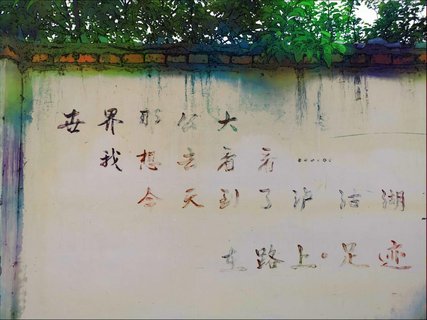 世界那么大
我想去看看......
今天到了泸沽湖
在路上·足迹